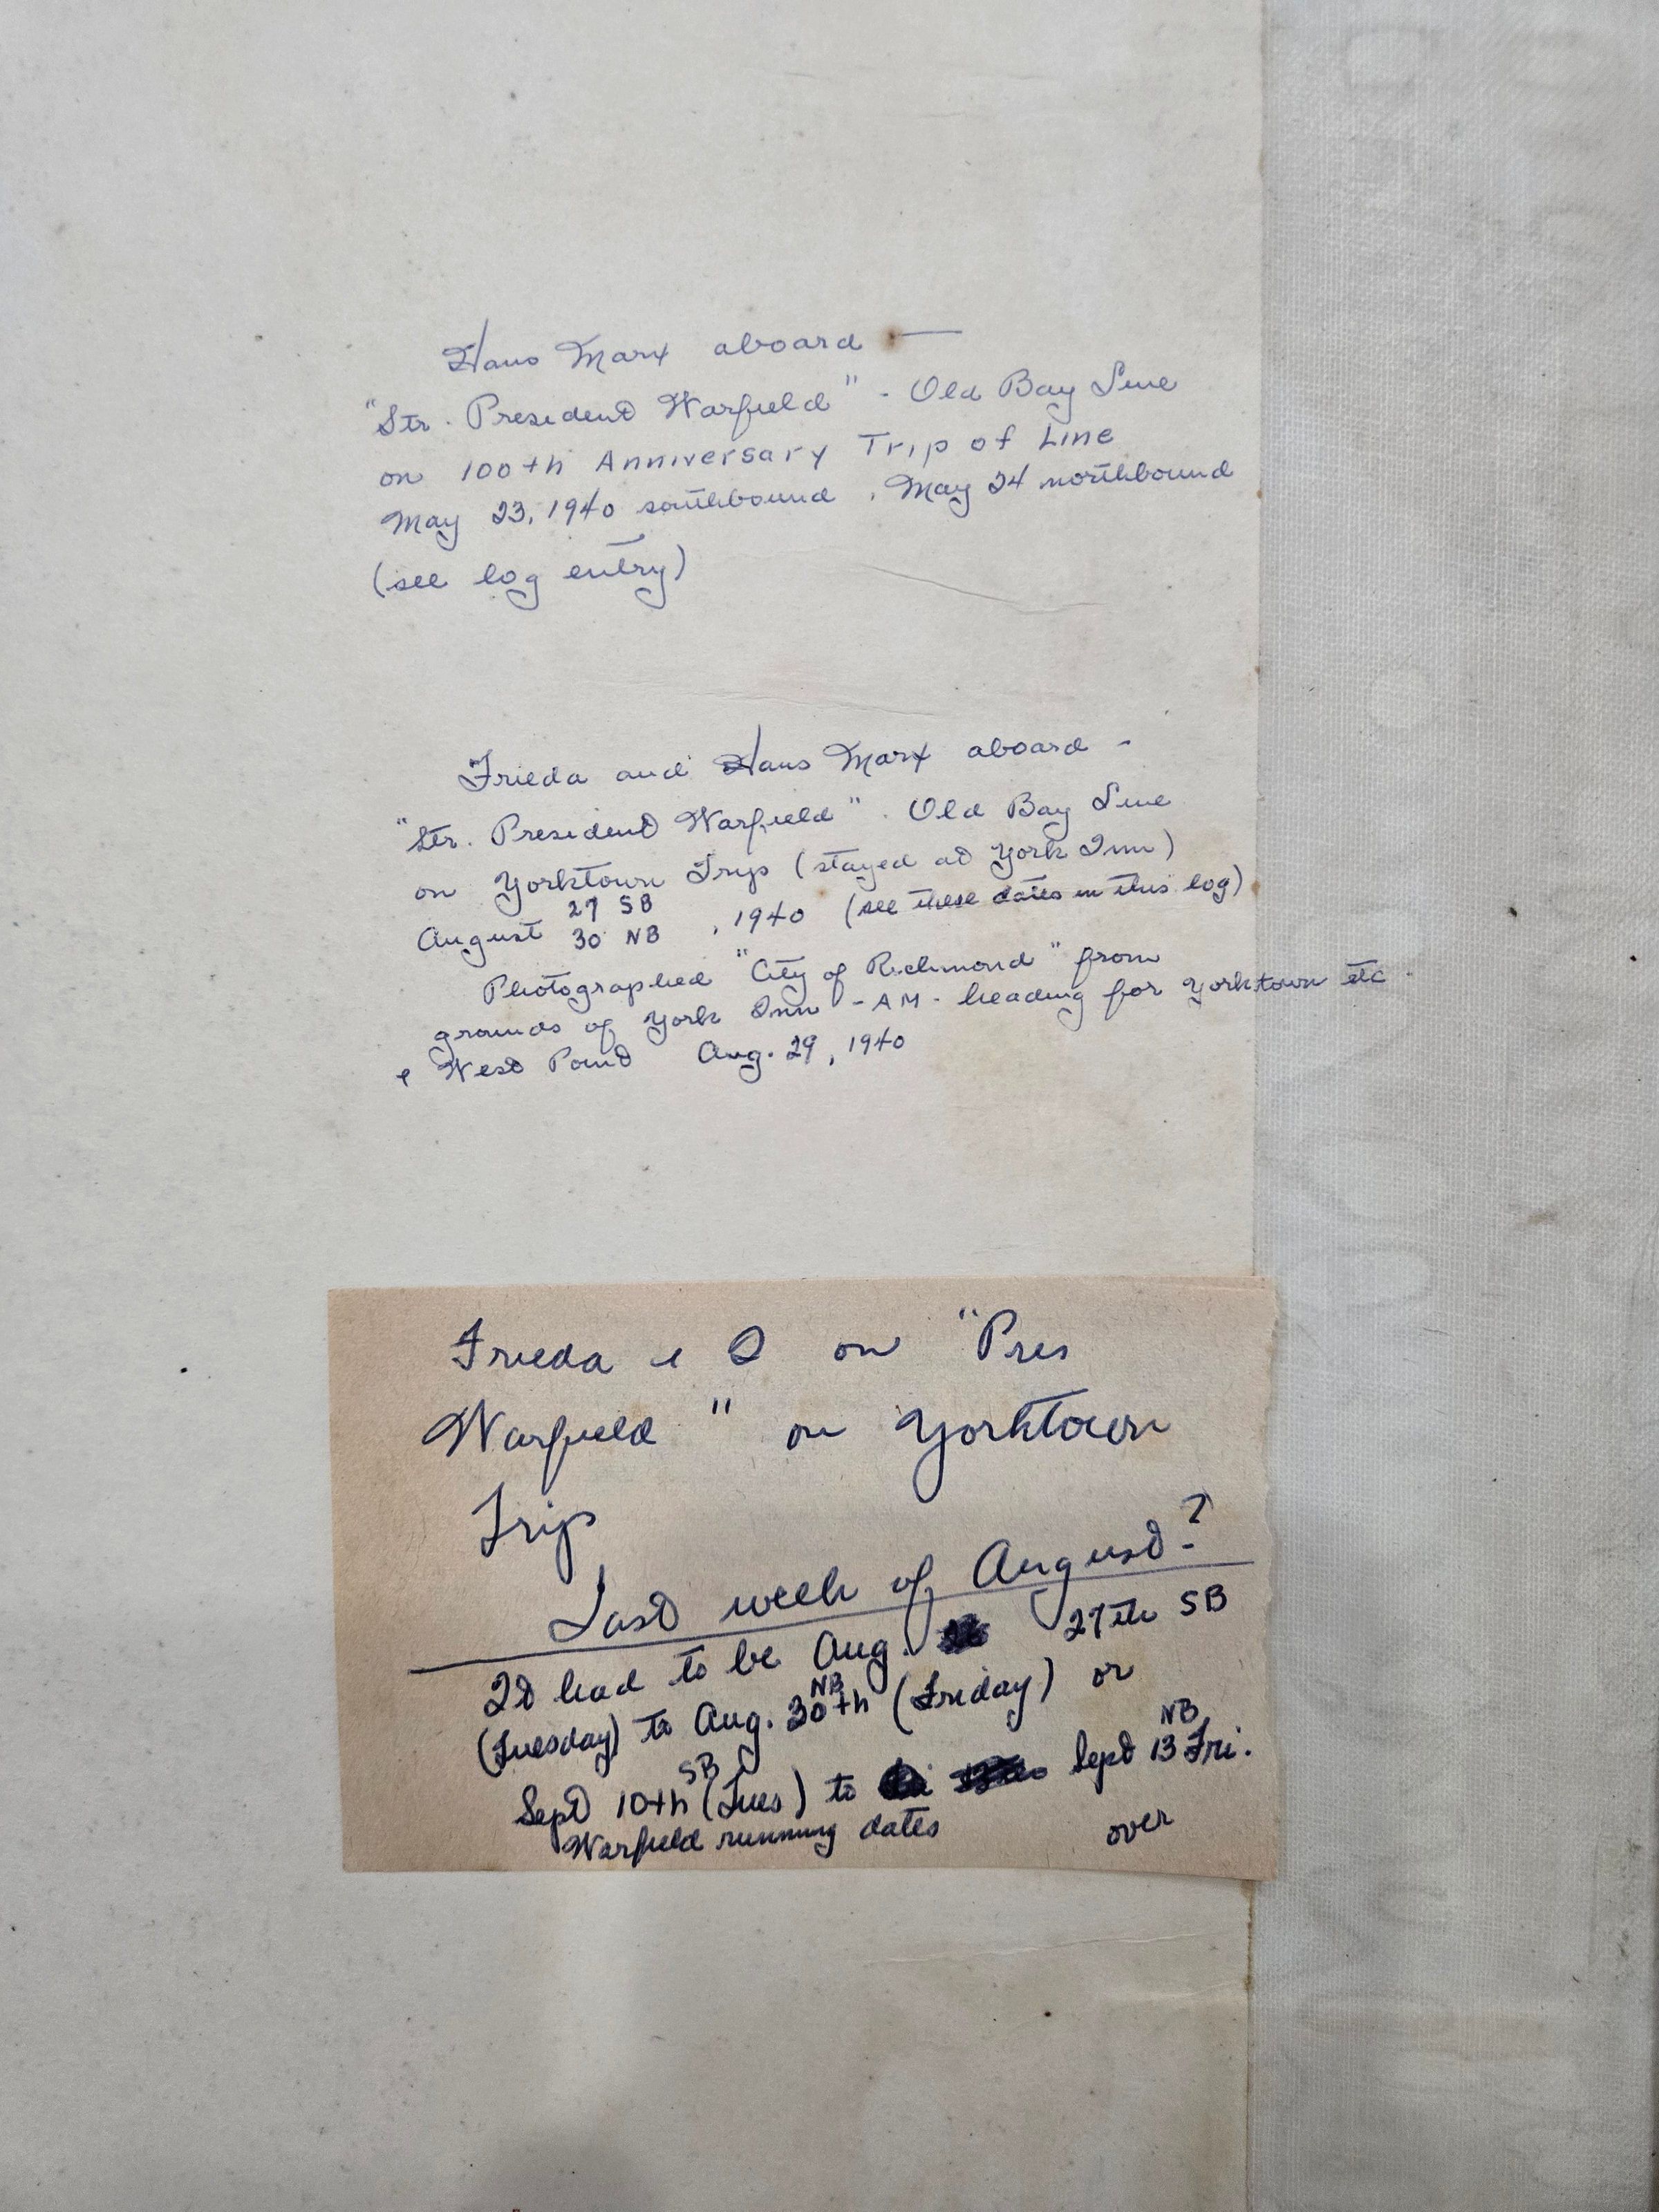 Hans Marx aboard —
"Str. President Warfield" - Old Bay Line
on 100th Anniversary Trip of Line
May 23, 1940 southbound, May 24 northbound
(see log entry)
Frieda and Hans Marx aboard -
"Str. President Warfield" - Old Bay Line
on Yorktown Trip (stayed at York Inn)
August 27 SB
30 NB, 1940 (see these dates in this log)
Photographed "City of Richmond" from
grounds of York Inn - AM - heading for Yorktown etc
& West Point Aug. 29, 1940
Frieda & I on "Pres
Warfield" on Yorktown
Trip
Last week of August?
It had to be Aug. 27th SB
(Tuesday) to Aug. 30th NB (Friday) or
Sept 10th SB (Tues) to Sept 13 NB Fri.
Warfield running dates over